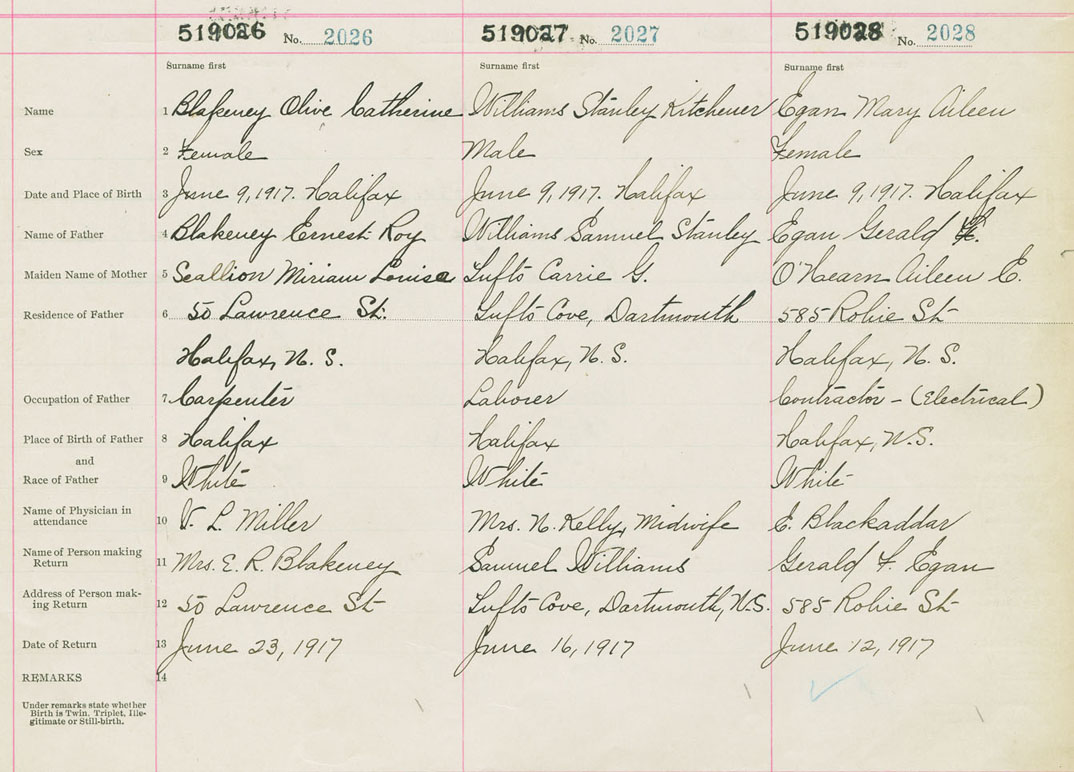 519026 No. 2026 519027 No. 2027 519028 No. 2028
Surname first Surname first Surname first
Name 1 Blakeney Olive Catherine Williams Stanley Kitchener Egan Mary Aileen
Sex 2 Female Male Female
Date and Place of Birth 3 June 9, 1917. Halifax June 9, 1917. Halifax June 9, 1917. Halifax
Name of Father 4 Blakeney Ernest Roy Williams Samuel Stanley Egan Gerald F.
Maiden Name of Mother 5 Scallion Miriam Louise Tufts Carrie G. O'Hearn Aileen E.
Residence of Father 6 50 Lawrence St. Tufts Cove, Dartmouth 585 Robie St
Halifax, N. S. Halifax, N. S. Halifax, N. S.
Occupation of Father 7 Carpenter Laborer Contractor - (Electrical)
Place of Birth of Father 8 Halifax Halifax Halifax, N.S.
and
Race of Father 9 White White White
Name of Physician in
attendance 10 V. L. Miller Mrs. N. Kelly, Midwife E. Blackaddar
Name of Person making
Return 11 Mrs. E. R. Blakeney Samuel Williams Gerald F. Egan
Address of Person mak-
ing Return 12 50 Lawrence St Tufts Cove, Dartmouth, N.S. 585 Robie St
Date of Return 13 June 23, 1917 June 16, 1917 June 12, 1917
REMARKS 14
Under remarks state whether
Birth is Twin, Triplet, Ille-
gitimate or Still-birth.